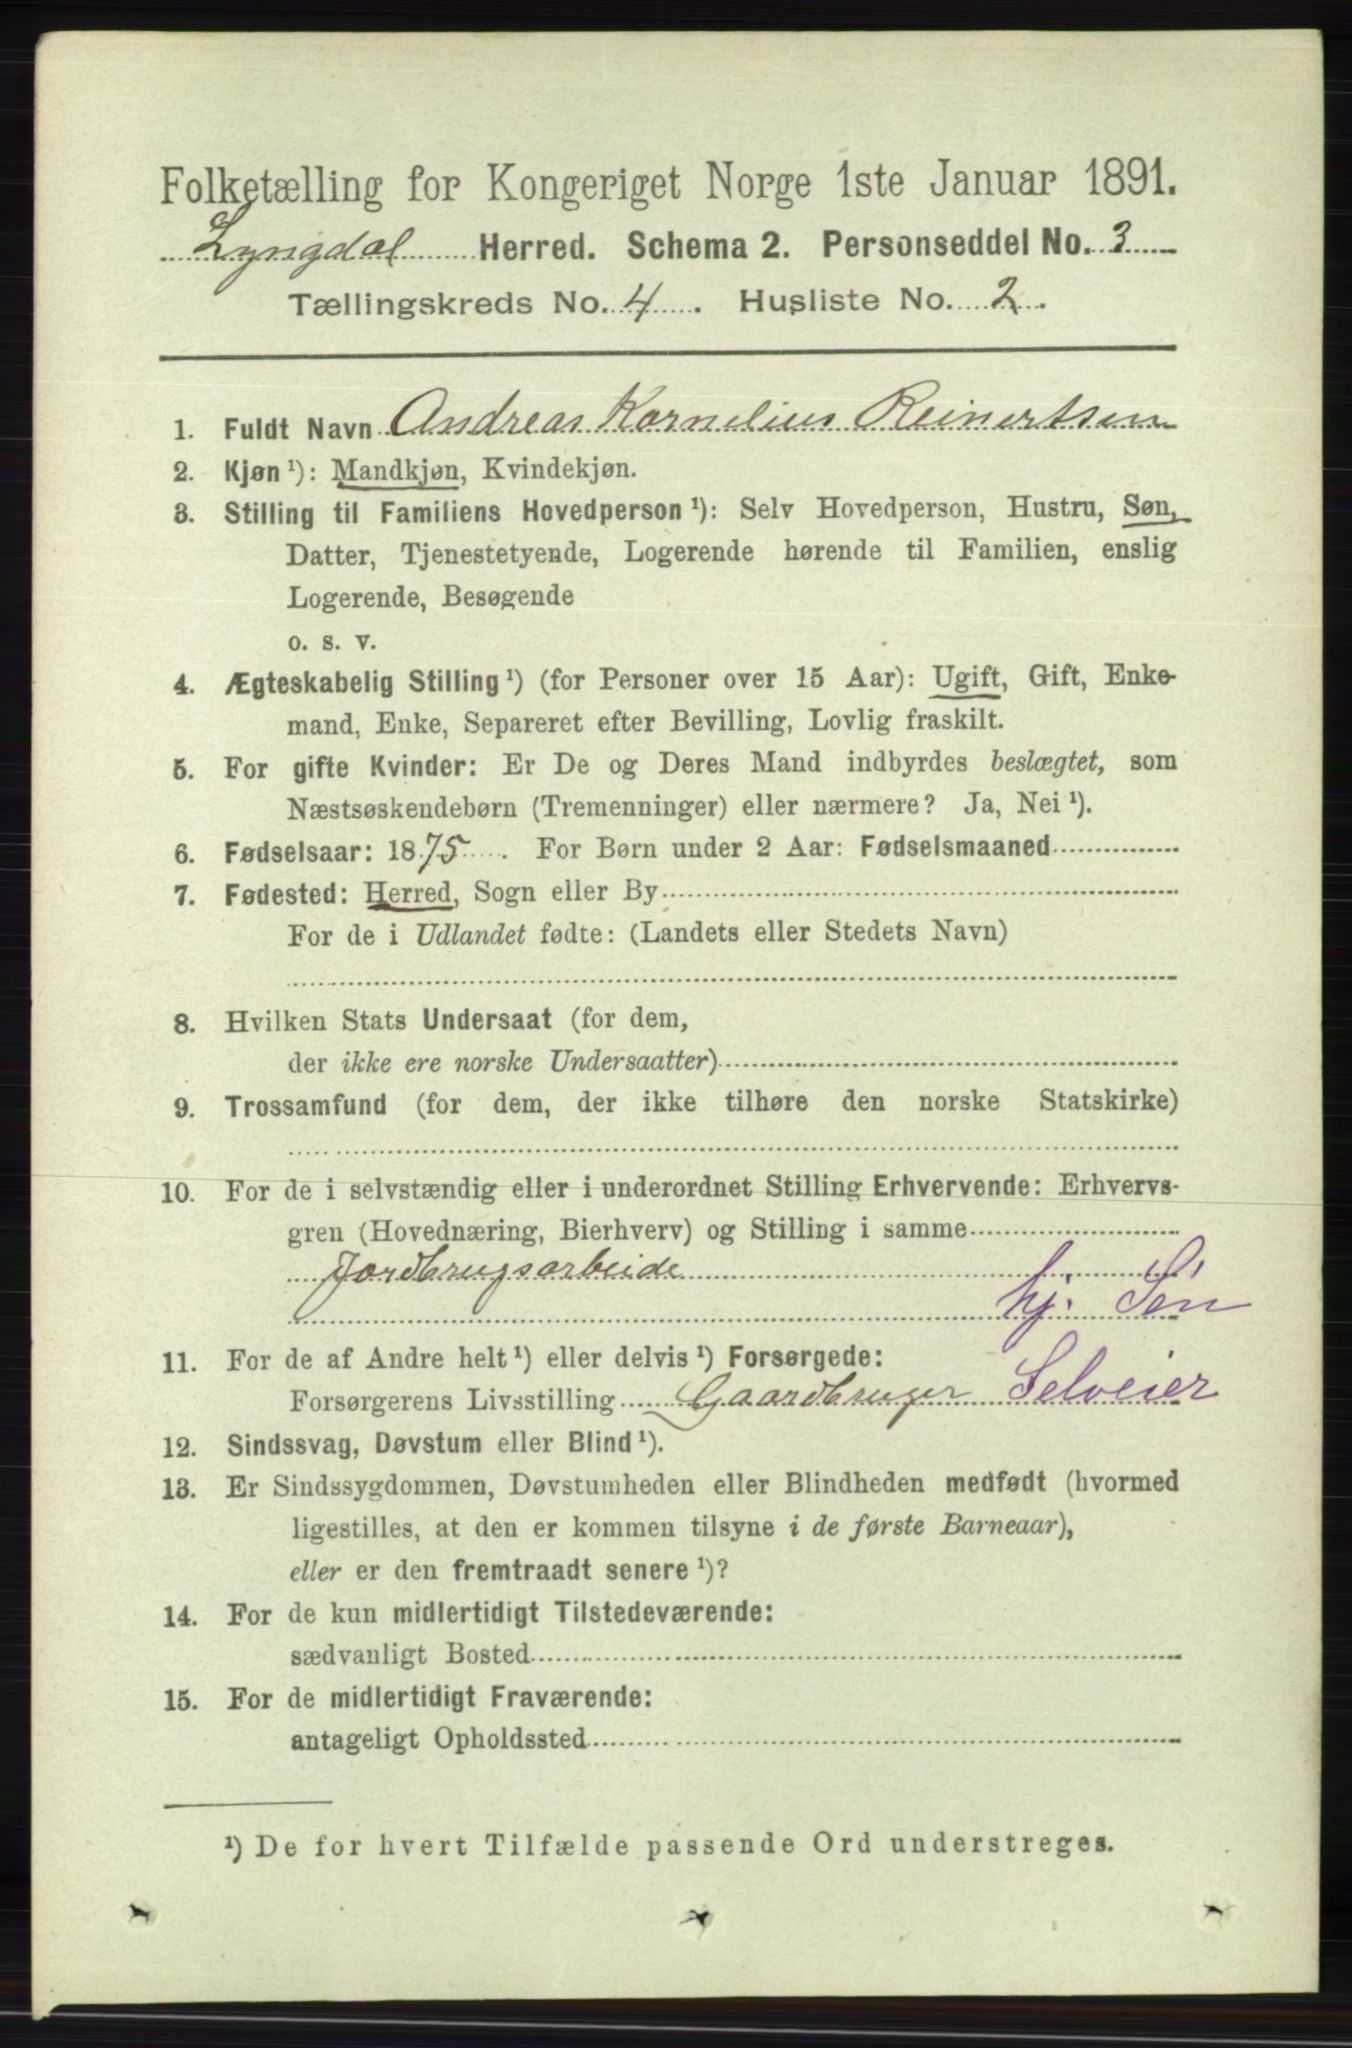 Folketælling for Kongeriget Norge 1ste Januar 1891.
Lyngdal Herred. Schema 2. Personseddel No. 3
Tællingskreds No. 4. Husliste No. 2.
1. Fuldt Navn Andreas Kornelius Reinertsen
2. Kjøn ¹): Mandkjøn, Kvindekjøn.
3. Stilling til Familiens Hovedperson ¹): Selv Hovedperson, Hustru, Søn,
Datter, Tjenestetyende, Logerende hørende til Familien, enslig
Logerende, Besøgende
o. s. v.
4. Ægteskabelig Stilling ¹) (for Personer over 15 Aar): Ugift, Gift, Enke-
mand, Enke, Separeret efter Bevilling, Lovlig fraskilt.
5. For gifte Kvinder: Er De og Deres Mand indbyrdes beslægtet, som
Næstsøskendebørn (Tremenninger) eller nærmere? Ja, Nei ¹).
6. Fødselsaar: 1875. For Børn under 2 Aar: Fødselsmaaned
7. Fødested: Herred, Sogn eller By
For de i Udlandet fødte: (Landets eller Stedets Navn)
8. Hvilken Stats Undersaat (for dem,
der ikke ere norske Undersaatter)
9. Trossamfund (for dem, der ikke tilhøre den norske Statskirke)
10. For de i selvstændig eller i underordnet Stilling Erhvervende: Erhvervs-
gren (Hovednæring, Bierhverv) og Stilling i samme
Jordbrugsarbeide
hj. Søn
11. For de af Andre helt ¹) eller delvis ¹) Forsørgede:
Forsørgerens Livsstilling Gaardbruger Selveier
12. Sindssvag, Døvstum eller Blind ¹).
13. Er Sindssygdommen, Døvstumheden eller Blindheden medfødt (hvormed
ligestilles, at den er kommen tilsyne i de første Barneaar),
eller er den fremtraadt senere ¹)?
14. For de kun midlertidigt Tilstedeværende:
sædvanligt Bosted
15. For de midlertidigt Fraværende:
antageligt Opholdssted
¹) De for hvert Tilfælde passende Ord understreges.